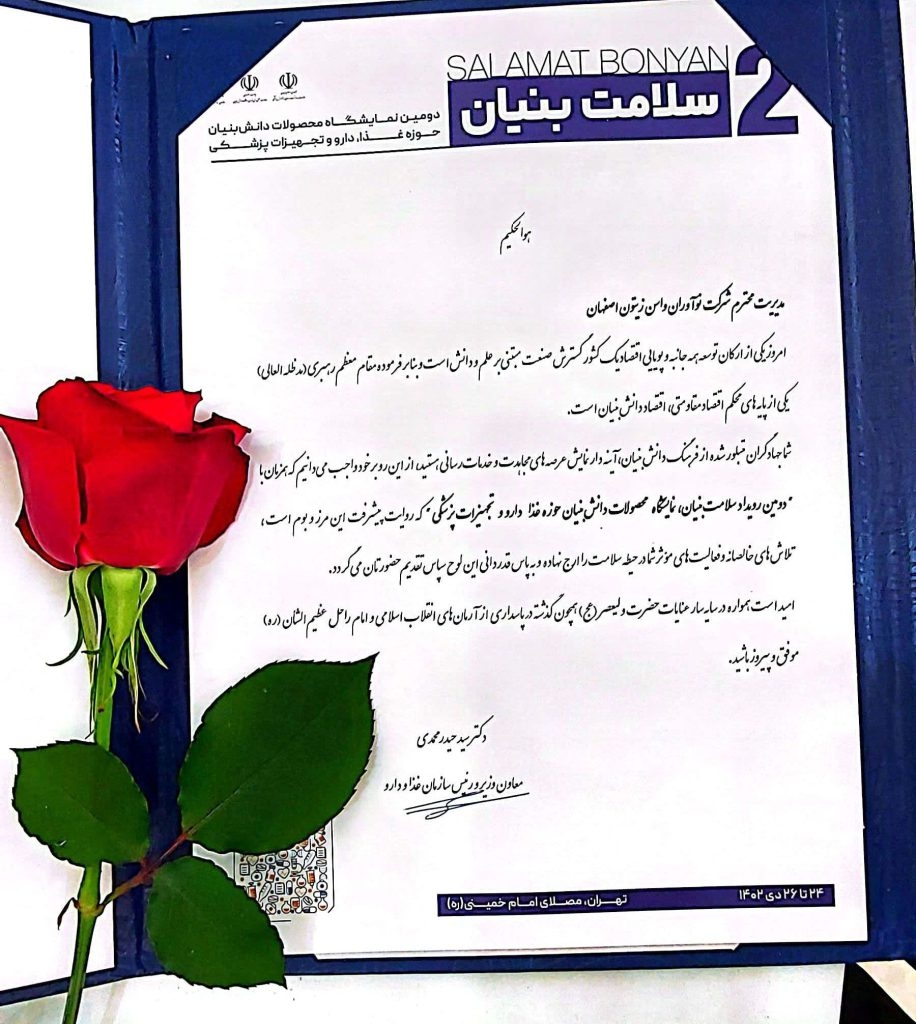 SALAMAT BONYAN 2
سلامت بنیان
دومین نمایشگاه محصولات دانش‌بنیان
حوزه غذا، دارو و تجهیزات پزشکی
هوالحکیم
مدیریت محترم شرکت نوآوران واسن زیتون اصفهان
امروز یکی از ارکان توسعه همه جانبه و پویایی اقتصاد یک کشور گسترش صنعت مبتنی بر علم و دانش است و بنابر فرموده مقام معظم رهبری (مدظله العالی)
یکی از پایه‌های محکم اقتصاد مقاومتی، اقتصاد دانش بنیان است.
شما جهادگران متبلور شده از فرهنگ دانش بنیان، آینه دار نمایش عرصه‌های مجاهدت و خدمات رسانی هستید، از این رو بر خود واجب می‌دانیم که همزمان با
"دومین رویداد سلامت بنیان، نمایشگاه محصولات دانش بنیان حوزه غذا دارو و تجهیزات پزشکی" که روایت پیشرفت این مرز و بوم است،
تلاش‌های خالصانه و فعالیت‌های مؤثر شما در حیطه سلامت را ارج نهاده و به پاس قدردانی این لوح سپاس تقدیم حضورتان می‌گردد.
امید است همواره در سایه سار عنایات حضرت ولیعصر (عج) همچون گذشته در پاسداری از آرمان‌های انقلاب اسلامی و امام راحل عظیم الشان (ره)
موفق و پیروز باشید.
دکتر سید حیدر محمدی
معاون وزیر و رئیس سازمان غذا و دارو
۲۴ تا ۲۶ دی ۱۴۰۲
تهران، مصلای امام خمینی(ره)